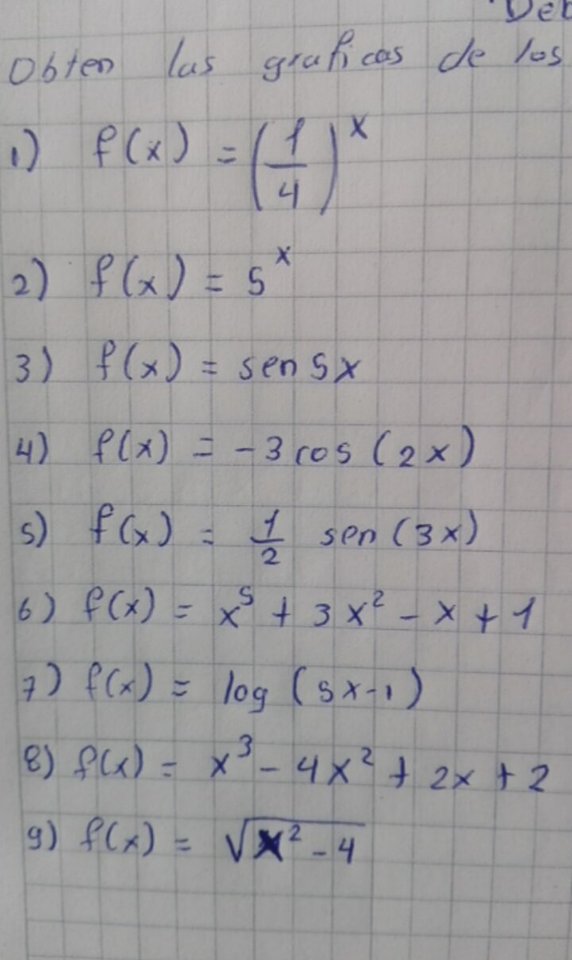 Obten las graficas de los
1) f(x) = (1/4)^x
2) f(x) = 5^x
3) f(x) = sen 5x
4) f(x) = -3 cos (2x)
5) f(x) = 1/2 sen (3x)
6) f(x) = x^5 + 3x^2 - x + 1
7) f(x) = log (5x-1)
8) f(x) = x^3 - 4x^2 + 2x + 2
9) f(x) = √(x^2 - 4)